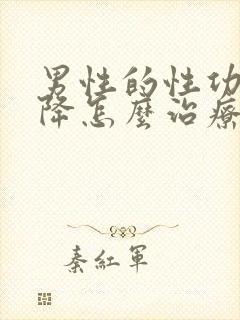 男性的性功
降怎麼治療
秦紅軍